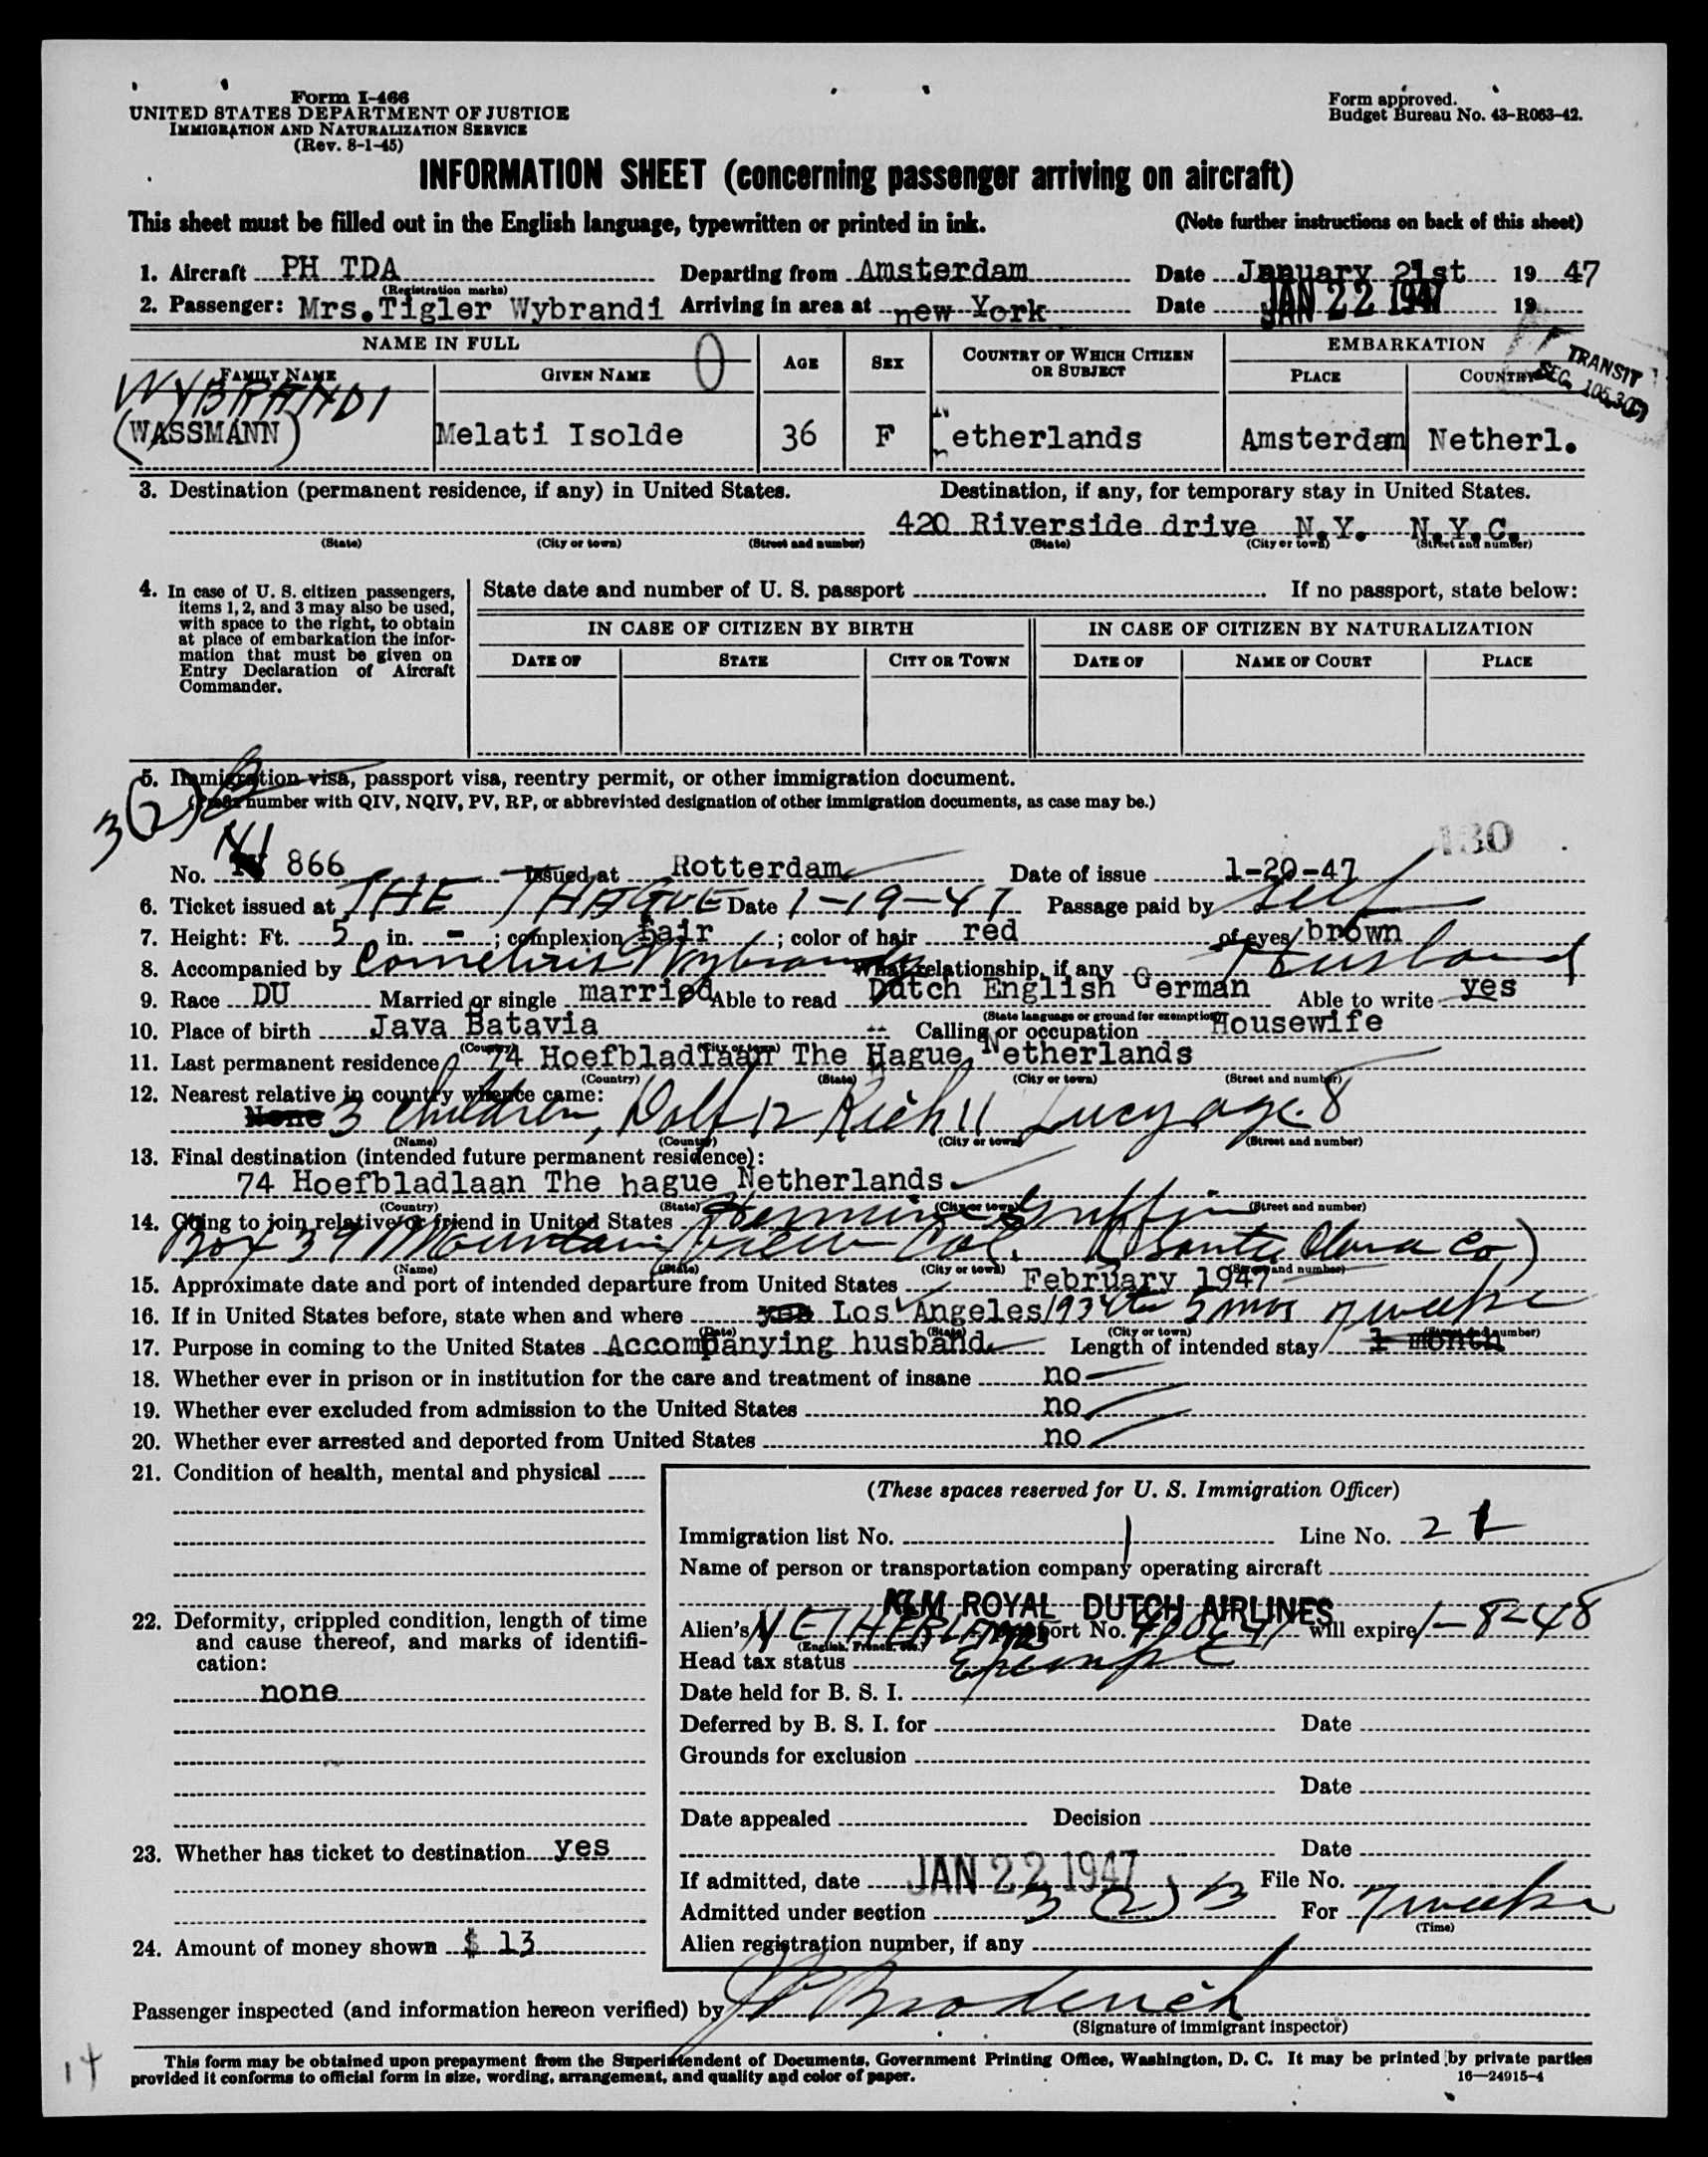 Form I-466
UNITED STATES DEPARTMENT OF JUSTICE
IMMIGRATION AND NATURALIZATION SERVICE
(Rev. 8-1-45)
Form approved.
Budget Bureau No. 43-R063-42.
INFORMATION SHEET (concerning passenger arriving on aircraft)
This sheet must be filled out in the English language, typewritten or printed in ink. (Note further instructions on back of this sheet)
1. Aircraft PH TDA Departing from Amsterdam Date January 21st 19 47
(Registration marks)
2. Passenger: Mrs.Tigler Wybrandi Arriving in area at new York Date JAN 22 1947 19
NAME IN FULL AGE SEX COUNTRY OF WHICH CITIZEN OR SUBJECT EMBARKATION
FAMILY NAME GIVEN NAME PLACE COUNTRY
TRANSIT
SEC.
WYBRANDI
(WASSMANN) Melati Isolde 36 F Netherlands Amsterdam Netherl.
3. Destination (permanent residence, if any) in United States. Destination, if any, for temporary stay in United States.
420 Riverside drive N.Y. N.Y.C.
(State) (City or town) (Street and number) (State) (City or town) (Street and number)
4. In case of U. S. citizen passengers, items 1, 2, and 3 may also be used, with space to the right, to obtain at place of embarkation the information that must be given on Entry Declaration of Aircraft Commander.
State date and number of U. S. passport If no passport, state below:
IN CASE OF CITIZEN BY BIRTH IN CASE OF CITIZEN BY NATURALIZATION
DATE OF STATE CITY OR TOWN DATE OF NAME OF COURT PLACE
5. Immigration visa, passport visa, reentry permit, or other immigration document.
(Prefix number with QIV, NQIV, PV, RP, or abbreviated designation of other immigration documents, as case may be.)
3(2)B
130
No. 866 Issued at Rotterdam Date of issue 1-20-47
6. Ticket issued at THE HAGUE Date 1-19-47 Passage paid by self
7. Height: Ft. 5 in. - ; complexion fair ; color of hair red of eyes brown
8. Accompanied by What relationship, if any Husband
9. Race DU Married or single married Able to read Dutch English German Able to write yes
(State language or ground for exemption)
10. Place of birth Java Batavia Calling or occupation Housewife
(Country) (City or town)
11. Last permanent residence 74 Hoefbladlaan The Hague Netherlands
(Country) (State) (City or town) (Street and number)
12. Nearest relative in country whence came:
None 3 children, Dolf 12 Rich 11 Lucy age 8
(Name) (Country) (City or town) (Street and number)
13. Final destination (intended future permanent residence):
74 Hoefbladlaan The hague Netherlands
(Country) (State) (City or town) (Street and number)
14. Going to join relative or friend in United States Griffin
Box 39 Mountain View Cal. (Santa Clara Co)
(Name) (State) (City or town) (Street and number)
15. Approximate date and port of intended departure from United States February 1947
16. If in United States before, state when and where yes Los Angeles 1934 5 mos
(Date) (State) (City or town) (Street and number)
17. Purpose in coming to the United States Accompanying husband Length of intended stay 1 month 7 weeks
18. Whether ever in prison or in institution for the care and treatment of insane no
19. Whether ever excluded from admission to the United States no
20. Whether ever arrested and deported from United States no
21. Condition of health, mental and physical
22. Deformity, crippled condition, length of time and cause thereof, and marks of identification:
none
23. Whether has ticket to destination yes
24. Amount of money shown $ 13
(These spaces reserved for U. S. Immigration Officer)
Immigration list No. 1 Line No. 2
Name of person or transportation company operating aircraft
KLM ROYAL DUTCH AIRLINES
Alien's NETHERLANDS passport No. will expire 1-8-48
(English, French, etc.)
Head tax status Exempt
Date held for B. S. I.
Deferred by B. S. I. for Date
Grounds for exclusion
Date
Date appealed Decision
Date
If admitted, date JAN 22 1947 File No.
Admitted under section 3(2)B For 7 weeks
(Time)
Alien registration number, if any
Passenger inspected (and information hereon verified) by Broderick
(Signature of immigrant inspector)
14
This form may be obtained upon prepayment from the Superintendent of Documents, Government Printing Office, Washington, D. C. It may be printed by private parties
provided it conforms to official form in size, wording, arrangement, and quality and color of paper. 16—24915-4